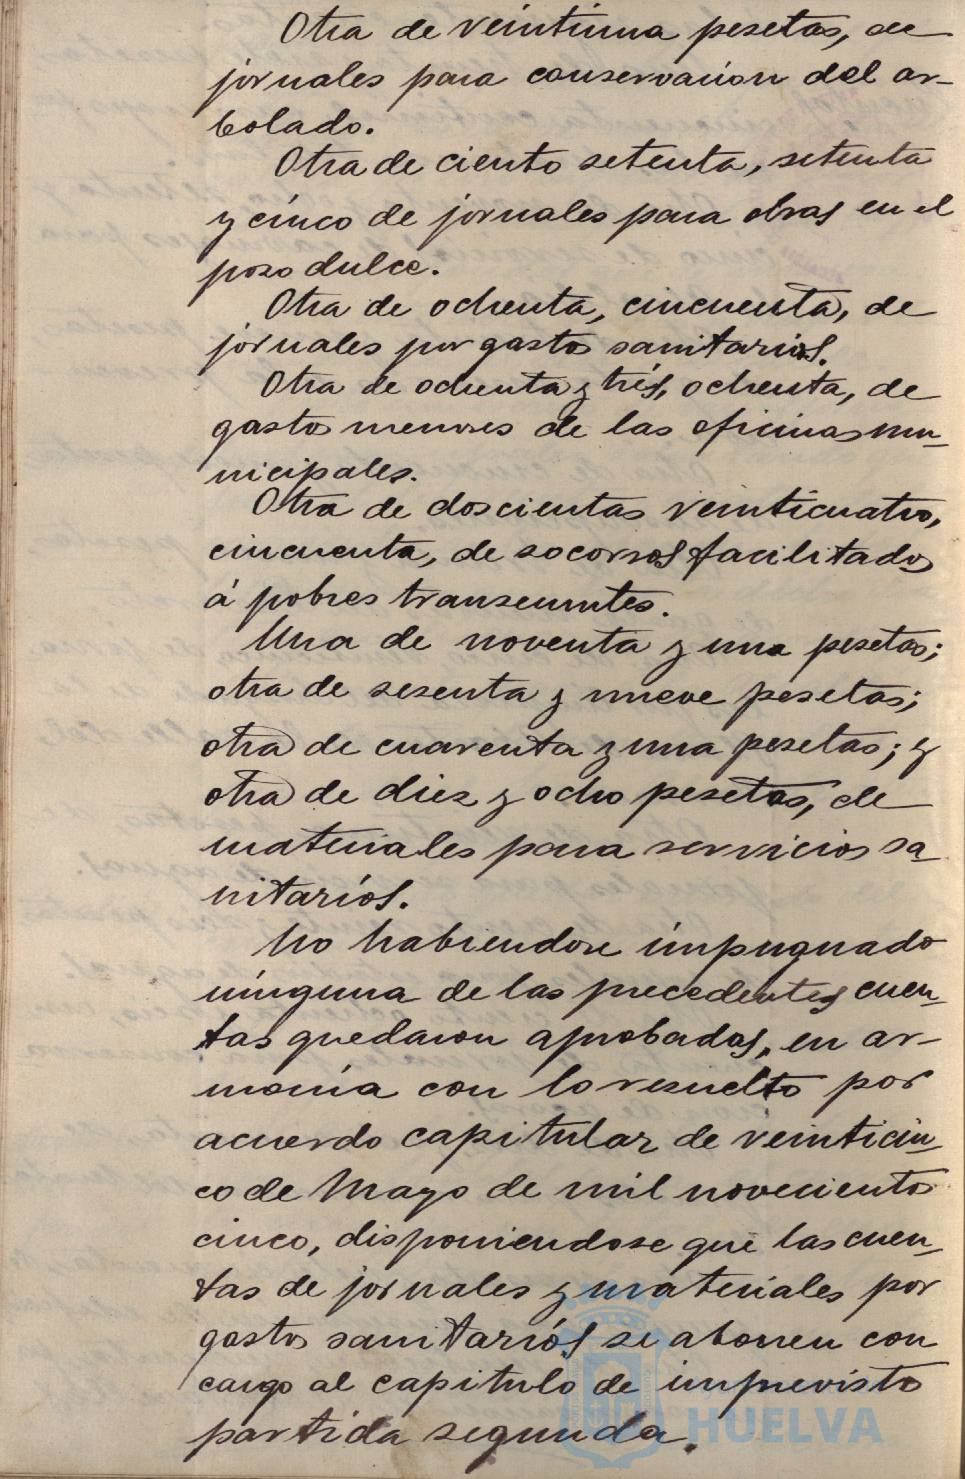 Otra de veintiuna pesetas, de
jornales para conservacion del ar-
bolado.
Otra de ciento setenta, setenta
y cinco de jornales para obras en el
poso dulce.
Otra de ochenta, cincuenta, de
jornales por gastos sanitarios.
Otra de ochenta y trés, ochenta, de
gastos menores de las oficinas mu-
nicipales.
Otra de doscientas veinticuatro,
cincuenta, de socorros facilitados
á pobres transeuntes.
Una de noventa y una pesetas;
otra de sesenta y nueve pesetas;
otra de cuarenta y una pesetas; y
otra de diez y ocho pesetas, de
materiales para servicios sa-
nitarios.
No habiendose impugnado
ninguna de las precedentes cuen-
tas quedaron aprobadas, en ar-
monia con lo resuelto por
acuerdo capitular de veinticin-
co de Mayo de mil novecientos
cinco, disponiendose que las cuen-
tas de jornales y materiales por
gastos sanitarios se abonen con
cargo al capitulo de imprevisto
partida segunda.
HUELVA